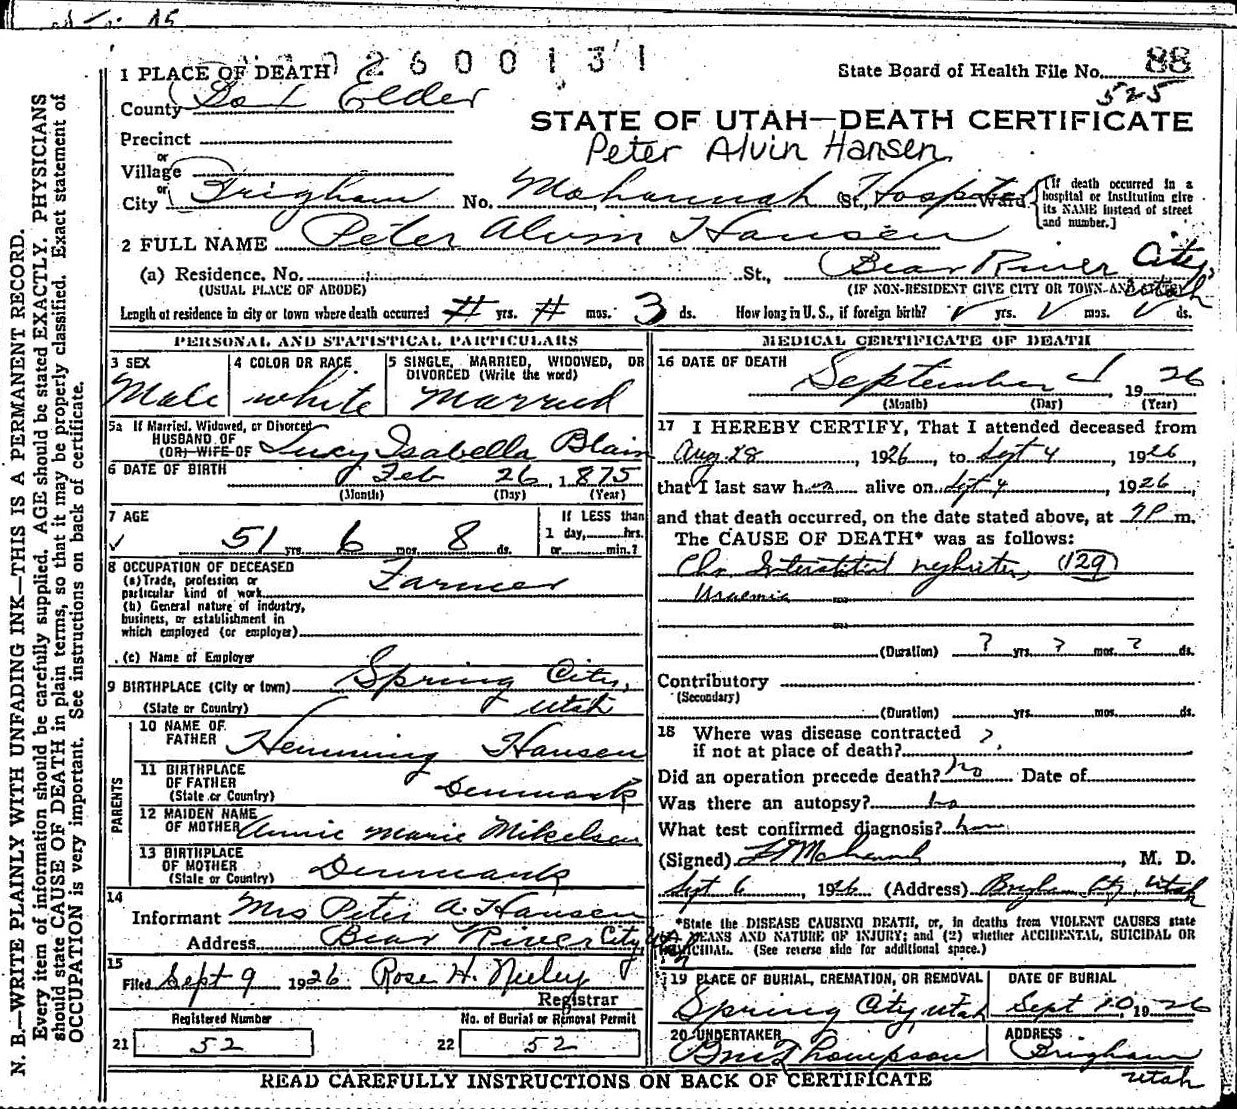 2600131
1 PLACE OF DEATH
State Board of Health File No. 88
525
County Box Elder
STATE OF UTAH—DEATH CERTIFICATE
Precinct
Peter Alvin Hansen
or
Village
or
City Brigham No. St., Hospital Ward
[If death occurred in a hospital or institution give its NAME instead of street and number.]
2 FULL NAME Peter Alvin Hansen
(a) Residence. No. St., Bear River City, Utah
(USUAL PLACE OF ABODE) (IF NON-RESIDENT GIVE CITY OR TOWN AND STATE)
Length of residence in city or town where death occurred # yrs. # mos. 3 ds. How long in U. S., if foreign birth? yrs. mos. ds.
PERSONAL AND STATISTICAL PARTICULARS
3 SEX
Male
4 COLOR OR RACE
White
5 SINGLE, MARRIED, WIDOWED, OR DIVORCED (Write the word)
Married
5a If Married, Widowed, or Divorced
HUSBAND OF
(OR) WIFE OF Lucy Isabella Blain
6 DATE OF BIRTH Feb 26, 1875
(Month) (Day) (Year)
7 AGE
51 yrs. 6 mos. 8 ds.
If LESS than
1 day, hrs.
or min.?
8 OCCUPATION OF DECEASED
(a) Trade, profession or
particular kind of work Farmer
(b) General nature of industry,
business, or establishment in
which employed (or employer)
(c) Name of Employer
9 BIRTHPLACE (City or town) Spring City,
(State or Country) Utah
PARENTS
10 NAME OF
FATHER Hemming Hansen
11 BIRTHPLACE
OF FATHER
(State or Country) Denmark
12 MAIDEN NAME
OF MOTHER Annie Marie Mikelsen
13 BIRTHPLACE
OF MOTHER
(State or Country) Denmark
14
Informant Mrs Peter A. Hansen
Address Bear River City, Utah
15
Filed Sept 9 1926 Rose H. Neeley
Registrar
Registered Number
21 52
No. of Burial or Removal Permit
22 52
MEDICAL CERTIFICATE OF DEATH
16 DATE OF DEATH
September 4 1926
(Month) (Day) (Year)
17 I HEREBY CERTIFY, That I attended deceased from
Aug 28, 1926, to Sept 4, 1926,
that I last saw h alive on Sept 4, 1926,
and that death occurred, on the date stated above, at 9P m.
The CAUSE OF DEATH* was as follows:
Chr Interstitial nephritis, (129)
Uraemia
(Duration) ? yrs. ? mos. ? ds.
Contributory
(Secondary)
(Duration) yrs. mos. ds.
18 Where was disease contracted
if not at place of death? ?
Did an operation precede death? no Date of
Was there an autopsy? no
What test confirmed diagnosis?
(Signed) , M. D.
Sept 6, 1926 (Address) Brigham City, Utah
*State the DISEASE CAUSING DEATH, or, in deaths from VIOLENT CAUSES state
MEANS AND NATURE OF INJURY; and (2) whether ACCIDENTAL, SUICIDAL OR
HOMICIDAL. (See reverse side for additional space.)
19 PLACE OF BURIAL, CREMATION, OR REMOVAL
Spring City, Utah
DATE OF BURIAL
Sept 10, 1926
20 UNDERTAKER
Thompson
ADDRESS
Brigham
Utah
READ CAREFULLY INSTRUCTIONS ON BACK OF CERTIFICATE
N. B.—WRITE PLAINLY WITH UNFADING INK—THIS IS A PERMANENT RECORD.
Every item of information should be carefully supplied. AGE should be stated EXACTLY. PHYSICIANS
should state CAUSE OF DEATH in plain terms, so that it may be properly classified. Exact statement of
OCCUPATION is very important. See instructions on back of certificate.